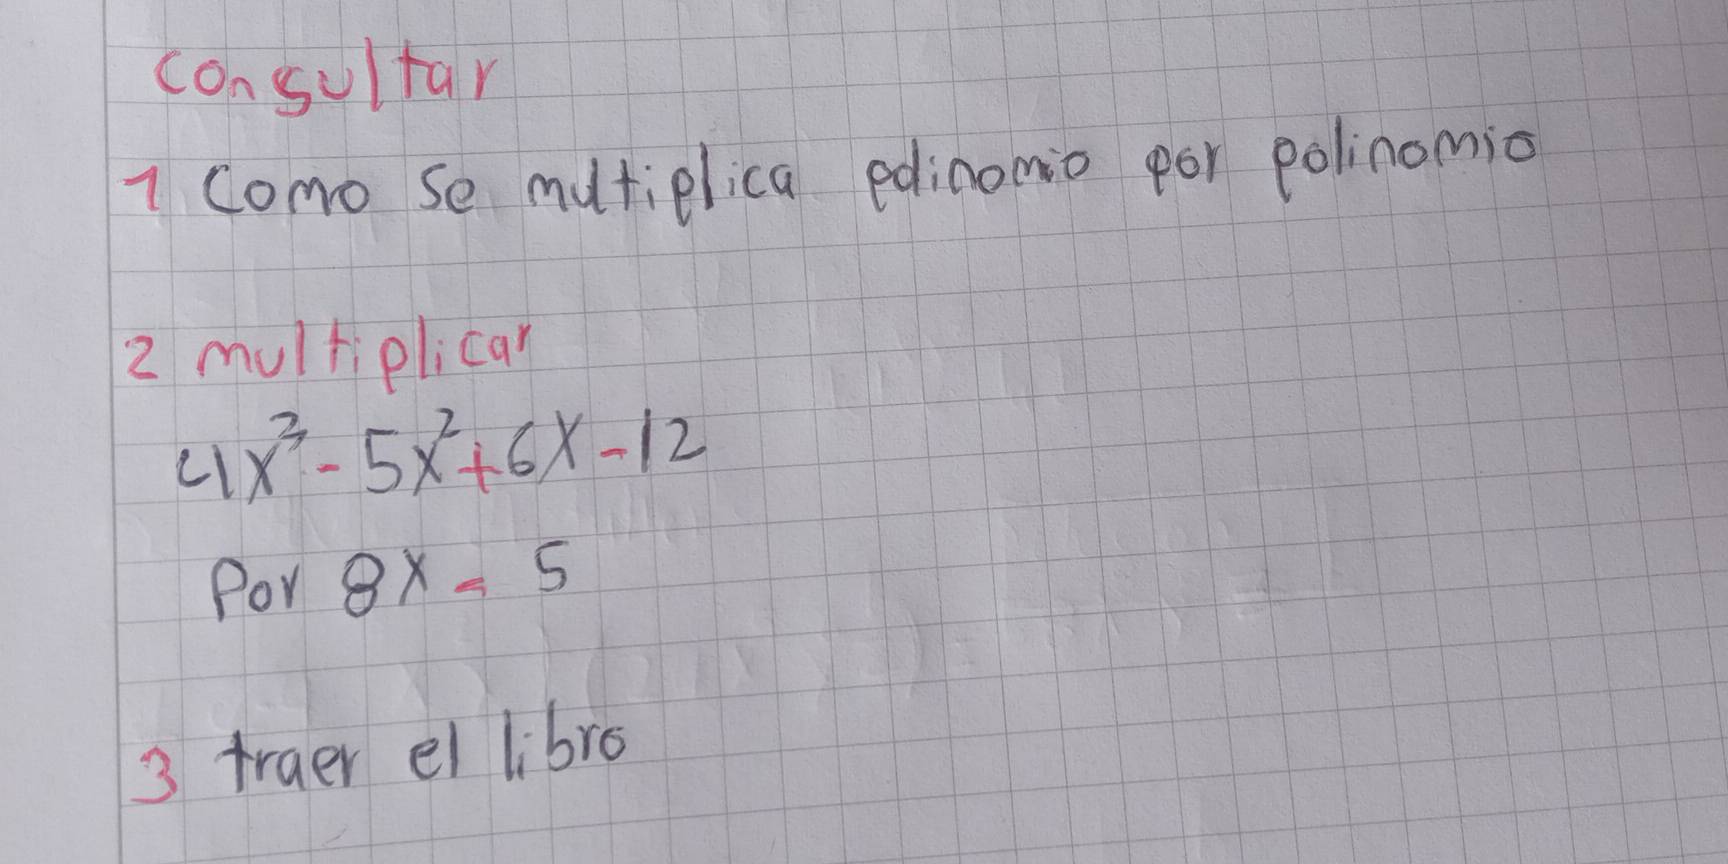 consultar
1 Como se multiplica polinomio por polinomio
2 multiplicar
4x³ - 5x² + 6x - 12
Por 8x - 5
3 traer el libro